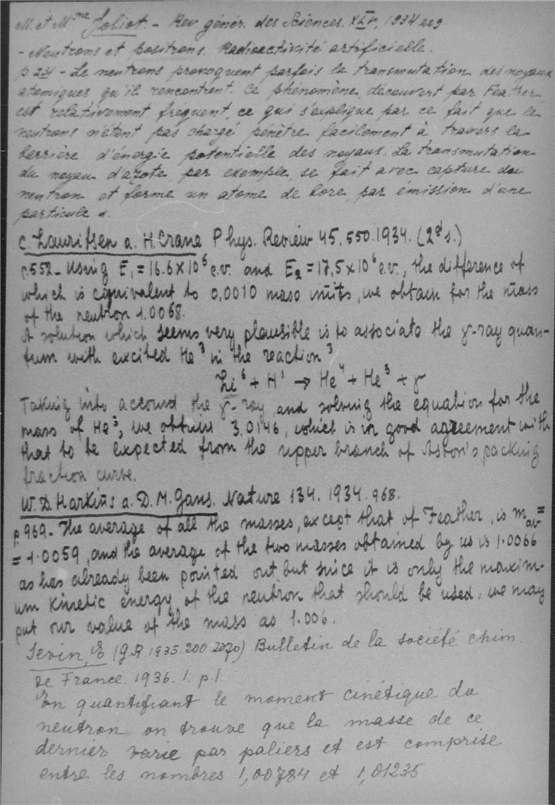 M. et Mme Joliot - Rev. génér. des Sciences. XLV, 1934 229
- Neutrons et positrons. Radioactivité artificielle.
p 234 - Le neutrons provoquent parfois la transmutation des noyaux
atomiques qu'il rencontrent. Ce phénomène, découvert par Feather
est relativement fréquent, ce qui s'explique par ce fait que le
neutrons n'étant pas chargé pénètre facilement à travers la
berrière d'énergie potentielle des noyaus. La transmutation
du noyau d'azote par exemple se fait avec capture du
neutron et forme un atome de bore par émission d'une
particule α.
C. Lauritsen a. H Crane Phys. Review 45, 550. 1934. (2d s.)
p.552 - Using E1 = 16.6 x 10⁶ e.v. and E2 = 17,5 x 10⁶ e.v., the difference of
which is equivalent to 0,0010 mass units, we obtain for the mass
of the neutron 1.0068.
A solution which seems very plausible is to associate the γ-ray quan-
tum with excited He³ in the reaction
Li⁶ + H¹ → He⁴ + He³ + γ
Taking into account the γ-ray and solving the equation for the
mass of He³, we obtain 3.0146, which is in good agreement with
that to be expected from the upper branch of Aston's packing
fraction curve.
W. D. Harkins a. D. M. Gans. Nature 134. 1934. 968.
p 969 - The average of all the masses, except that of Feather, is mav =
= 1.0059, and the average of the two masses obtained by us is 1.0066
as has already been pointed out but since it is only the maxim-
um kinetic energy of the neutron that should be used, we may
put our value of the mass as 1.006.
Sevin, E (1935. 200 2070) Bulletin de la société chim.
de France. 1936. 1. p.1.
En quantifiant le moment cinétique du
neutron on trouve que la masse de ce
dernier varie par paliers et est comprise
entre les nombres 1,00784 et 1,01235